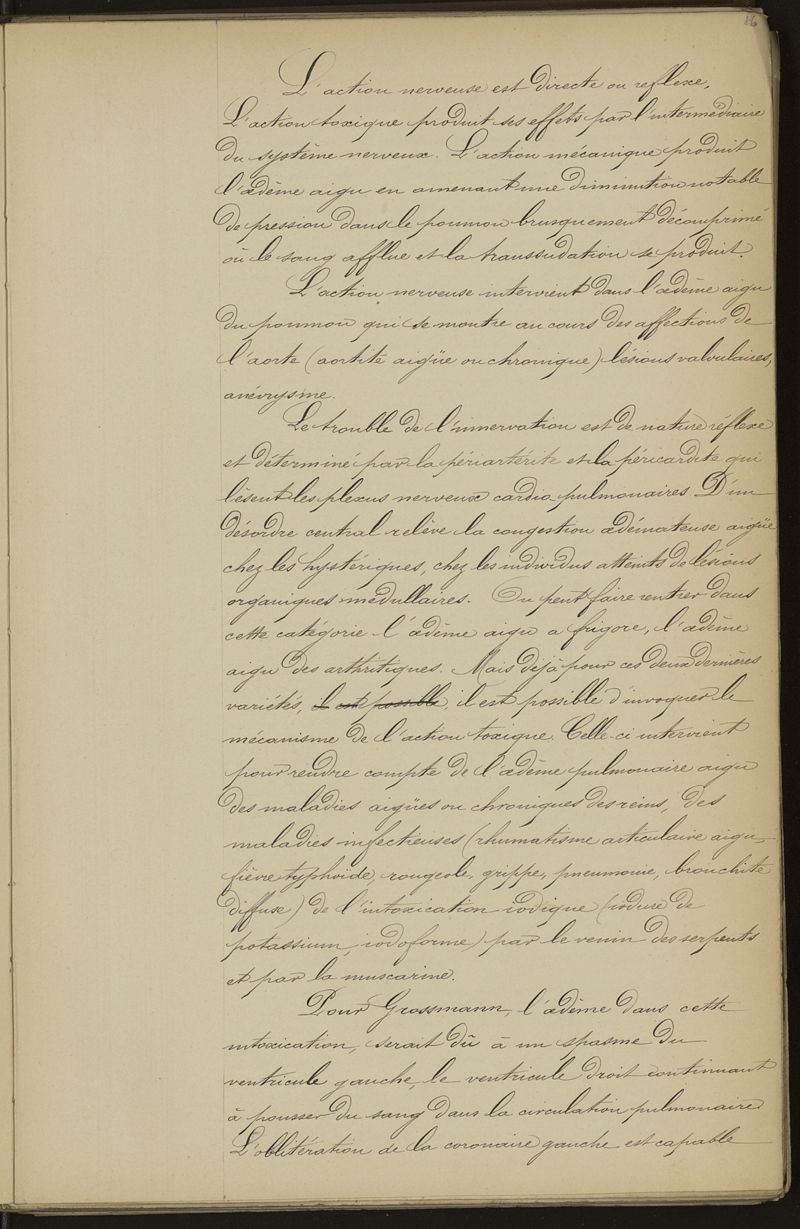 16
L'action nerveuse est directe ou reflexe.
L'action toxique produit ses effets par l'intermédiaire
du système nerveux. L'action mécanique produit
l'œdème aigu en amenant une diminution notable
de pression dans le poumon brusquement décomprimé
où le sang afflue et la transsudation se produit.
L'action nerveuse intervient dans l'œdème aigu
du poumon qui se montre au cours des affections de
l'aorte (aortite aigüe ou chronique) lésions valvulaires,
anévrysme.
Le trouble de l'innervation est de nature réflexe
et déterminé par la périartérite et la péricardite qui
lèsent les plexus nerveux cardio pulmonaires. D'un
désordre central relève la congestion œdémateuse aigüe
chez les hystériques, chez les individus atteints de lésions
organiques médullaires. On peut faire rentrer dans
cette catégorie l'œdème aigu a frigore, l'œdème
aigu des arthritiques. Mais déjà pour ces deux dernières
variétés, il est possible, il est possible d'invoquer le
mécanisme de l'action toxique. Celle-ci intervient
pour rendre compte de l'œdème pulmonaire aigu
des maladies aigües ou chroniques des reins, des
maladies infectieuses (rhumatisme articulaire aigu,
fièvre typhoïde, rougeole, grippe, pneumonie, bronchite
diffuse) de l'intoxication iodique (iodure de
potassium, iodoforme) par le venin des serpents
et par la muscarine.
Pour Grossmann, l'œdème dans cette
intoxication, serait dû à un spasme du
ventricule gauche, le ventricule droit continuant
à pousser du sang dans la circulation pulmonaire.
L'oblitération de la coronaire gauche est capable